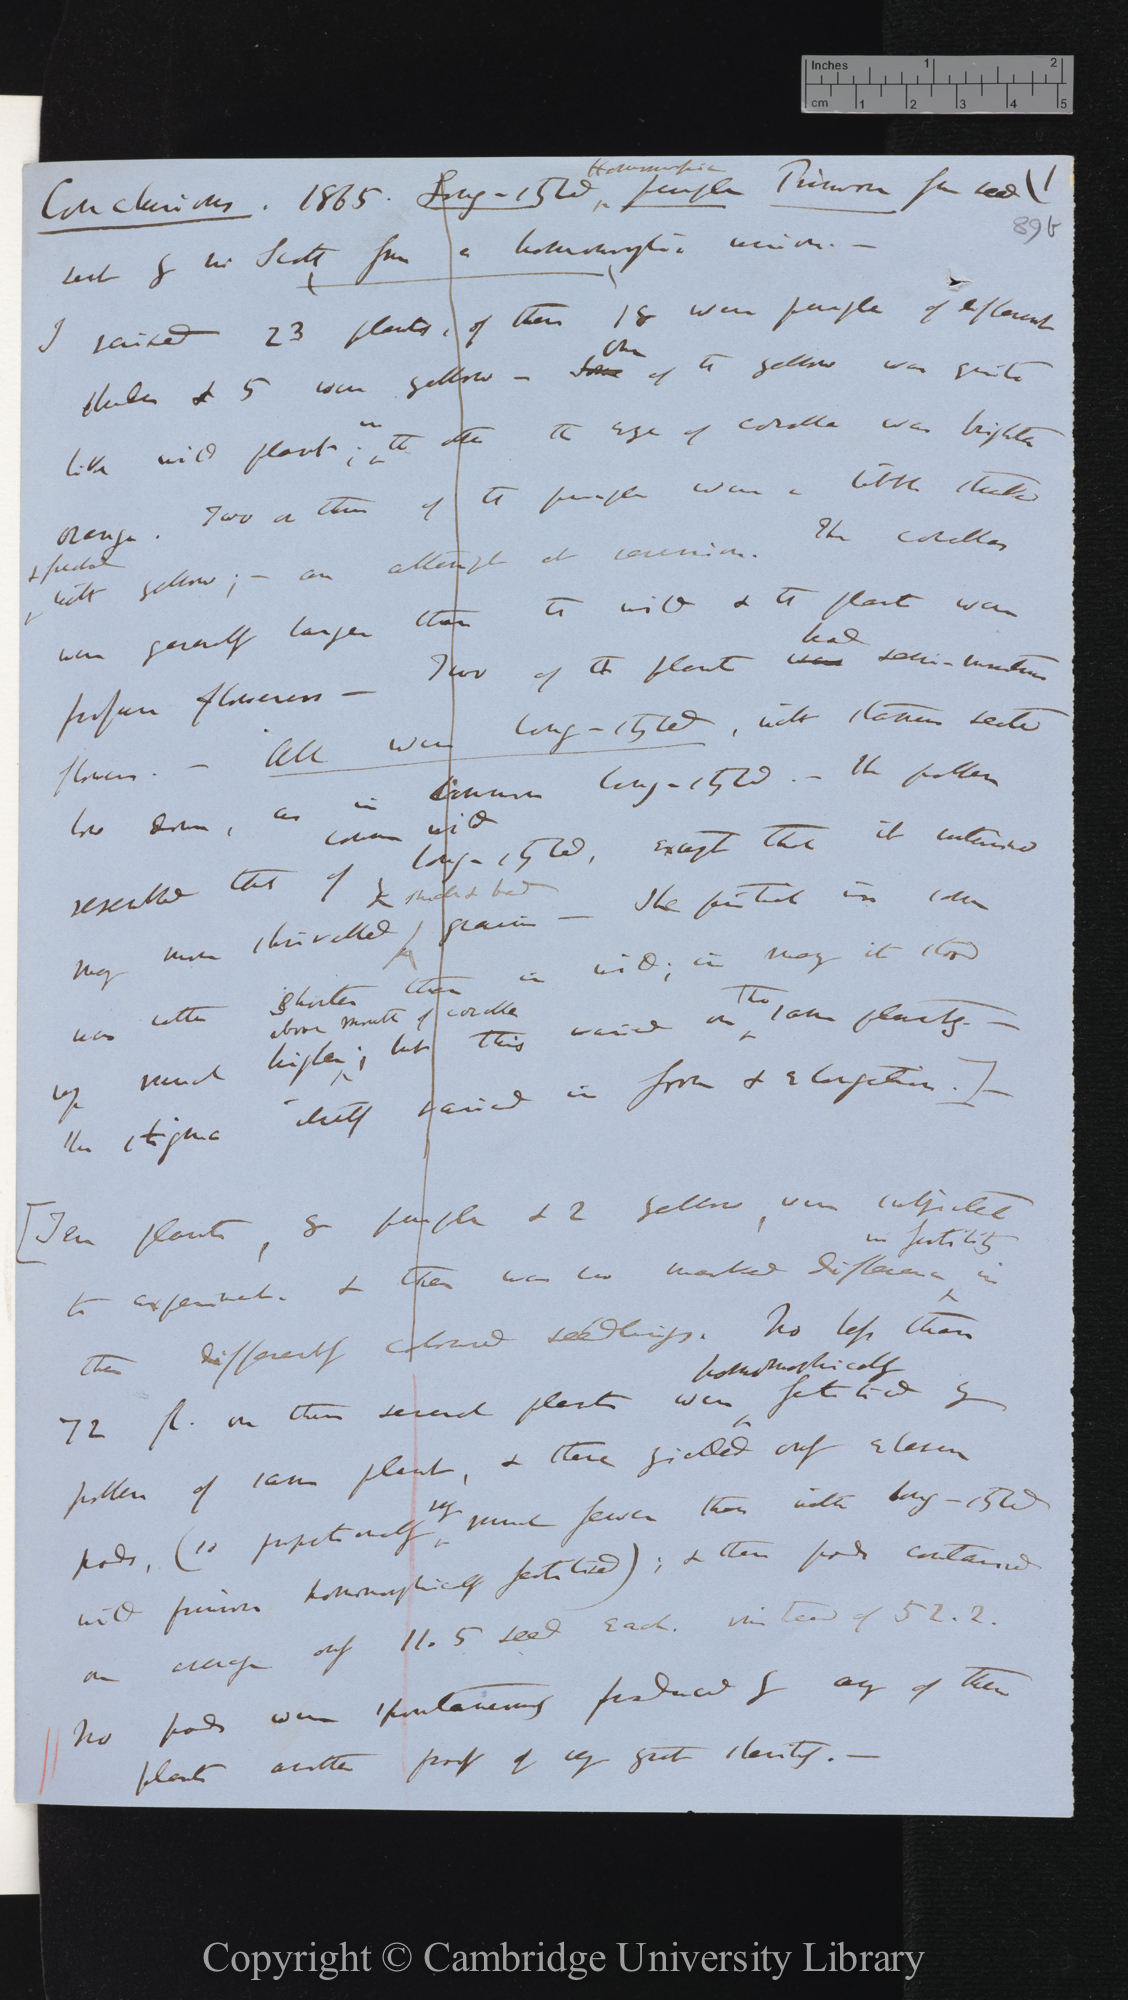 Inches 1 2
cm 1 2 3 4 5
Homomorphic
Conclusions. 1865. Long-styled, purple Primrose from seed (1
89b
sent by Mr Scott from a homomorphic union. —
I raised 23 plants, of these 18 were purple of different
One
shades & 5 were yellow — Some of the yellow was quite
in
like wild plants; the other the eye of corolla was brighter
orange. Two or three of the purple were a little streaked
& freckled
with yellow; — an attempt at reversion. The corollas
were generally larger than the wild & the plants were
had
profuse flowerers — Two of the plants was semi-monstrous
flowers. — All were long-styled, with stamens seated
low down, as in common long-styled. — The pollen
common wild
resembled that of long-styled, except that it contained
small & bad
many more shrivelled grains — The pistil in some
was rather shorter than in wild; in many it stood
above mouth of corolla
The
very much higher; but this varied on same plants. —
The stigma itself varied in form & elongation.] —
[Ten plants, 8 purple & 2 yellow, were subjected
in fertility
to experiment. & there was no marked difference in
these differently coloured seedlings. No less than
homomorphically
72 fl. on these several plants were fertilised by
pollen of same plant, & these yielded only eleven
very
pods, (so proportionally much fewer than with long-styled
wild primrose homomorphically fertilised); & these pods contained
on average only 11.5 seed each. instead of 52.2.
No pods were spontaneously produced by any of these
plants another proof of very great sterility. —
Copyright © Cambridge University Library